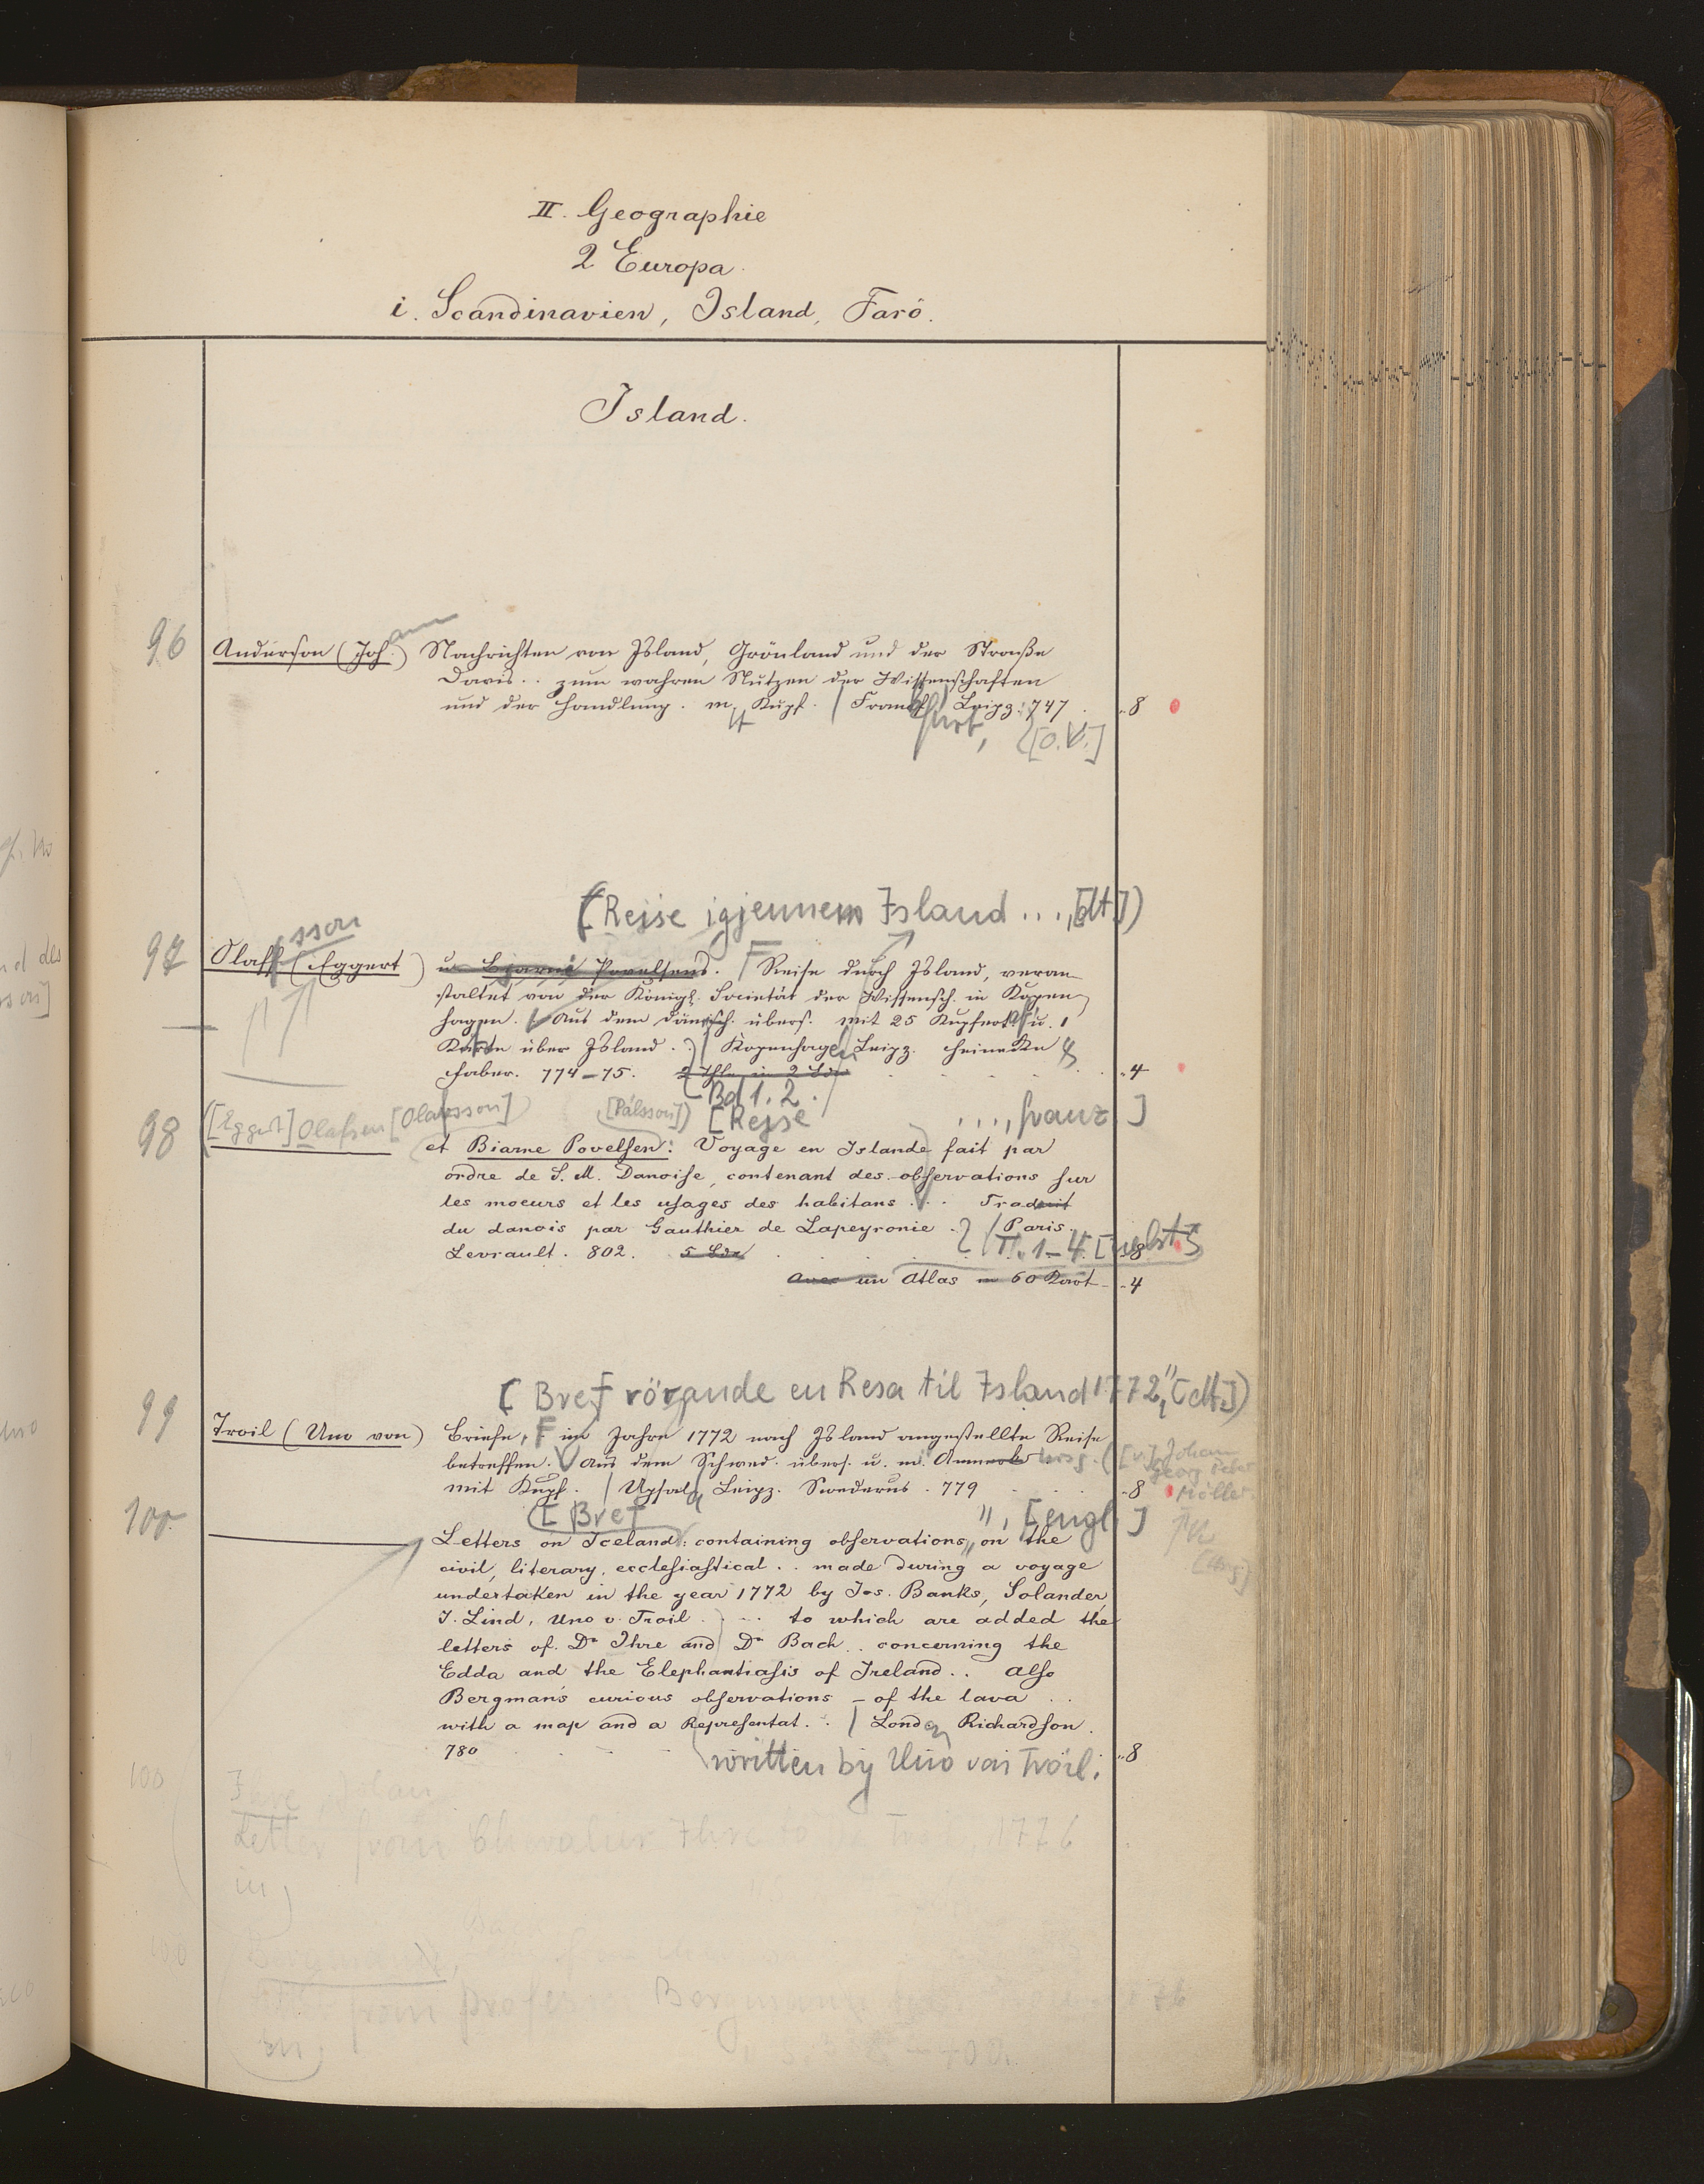 II. Geographie
2 Europa.
i. Scandinavien, Island, Farö.
Island.
96 Anderson (Joh.ann) Nachrichten von Island, Grönland und der Straße
Davis.. zum wahren Nutzen der Wissenschaften
und der Handlung. m. Kupf. / Frankfurt, Leipz. 747 . . 8
[O. V.]
(Rejse igjennem Island . . . , [dt.])
97 Olafsson (Eggert) u. Bjarne Povelsens. Reise durch Island, veran
staltet von der Königl. Societät der Wissensch. in Kopen
hagen. Aus dem Dänisch. übers. mit 25 Kupfert. u. 1
Karte über Island. / Kopenhagen Leipz. Heinecke &
Faber. 774–75. 2 Thle in 2 Bdn . . . . 4
Bd 1. 2.
98 [Eggert] Olafsen [Olafsson] [Pálsson]) [Rejse . . . , franz.]
et Biarne Povelsen: Voyage en Islande fait par
ordre de S. M. Danoise, contenant des observations sur
les moeurs et les usages des habitans . . . Traduit
du danois par Gauthier de Lapeyronie . / Paris.
Levrault. 802. 5 Bde . . . T. 1–4. [nebst] 8
avec un Atlas in 60 Kart . . 4
[Bref rörande en Resa til Island 1772", [dt.])
99 Troil (Uno von) Briefe, im Jahre 1772 nach Island angestellte Reise
betreffen. Aus dem Schwed. übers. u. m. Anmerk hrsg. ([v.] Johann
Georg Peter
mit Kupf. / Upsala Leipz. Swederus. 779 . . 8 Möller
[Bref ", [engl.]
100. Letters on Iceland: containing observations on the
civil, literary, ecclesiastical . . made during a voyage
undertaken in the year 1772 by Jos. Banks, Solander,
J. Lind, Uno v. Troil . . . to which are added the
letters of Dr Ihre and Dr Bach . . concerning the
Edda and the Elephantiasis of Ireland . . also
Bergman's curious observations – of the lava . .
with a map and a Representat. . / London Richardson.
780 . . . 8
written by Uno von Troil.
100
Ihre, Johan
Letter from Chevalier Ihre to Dr Troil, 1776
in)
from professor Bergmann
in)